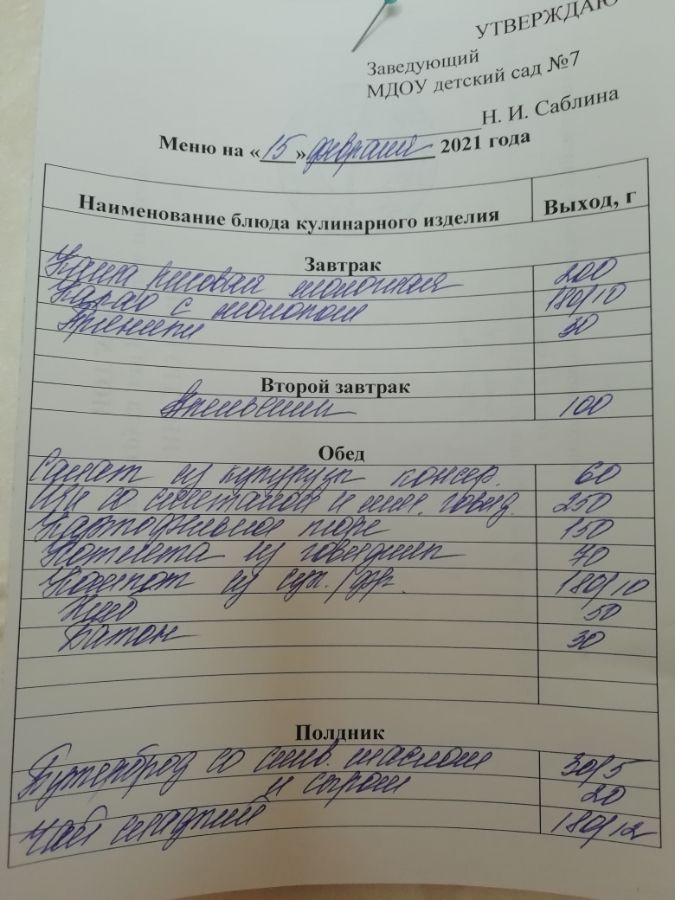 УТВЕРЖДАЮ
Заведующий
МДОУ детский сад №7
Н. И. Саблина
Меню на «15» февраля 2021 года
Наименование блюда кулинарного изделия Выход, г
Завтрак
Каша рисовая молочная 200
Какао с молоком 180/10
Пряники 30
Второй завтрак
Апельсин 100
Обед
Салат из кукурузы консер. 60
Щи со сметаной и мяс. говяд. 250
Картофельное пюре 150
Котлета из говядины 70
Компот из сух./фр. 180/10
Хлеб 50
Батон 30
Полдник
Бутерброд со слив. маслом 30/5
и сыром 20
Чай сладкий 180/12